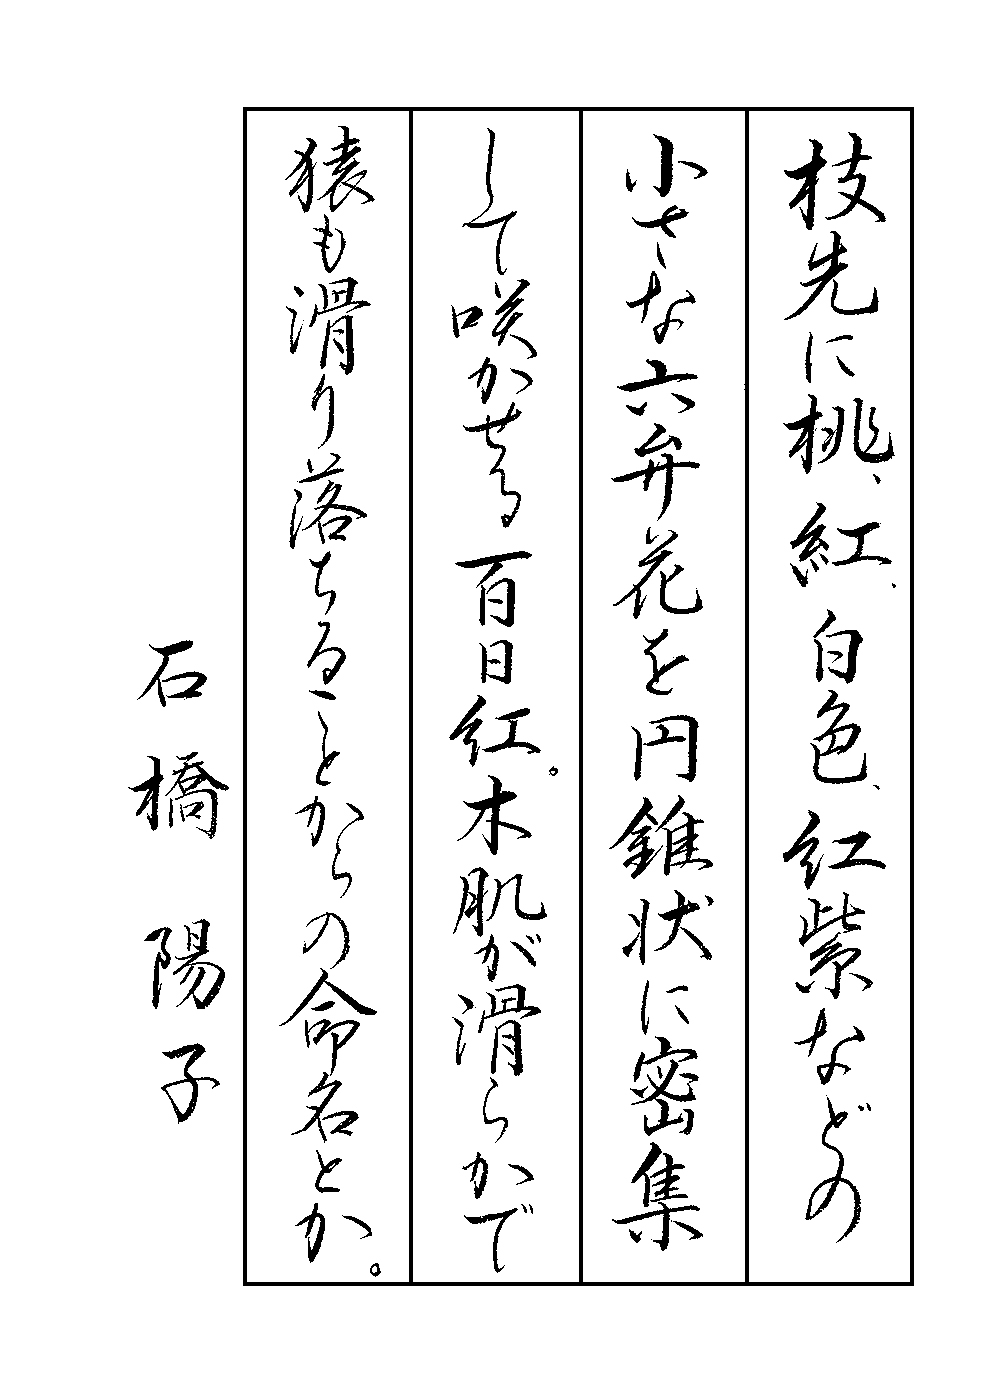 枝先に桃、紅、白色、紅紫などの
小さな六弁花を円錐状に密集
して咲かせる百日紅。木肌が滑らかで
猿も滑り落ちることからの命名とか。
石橋陽子